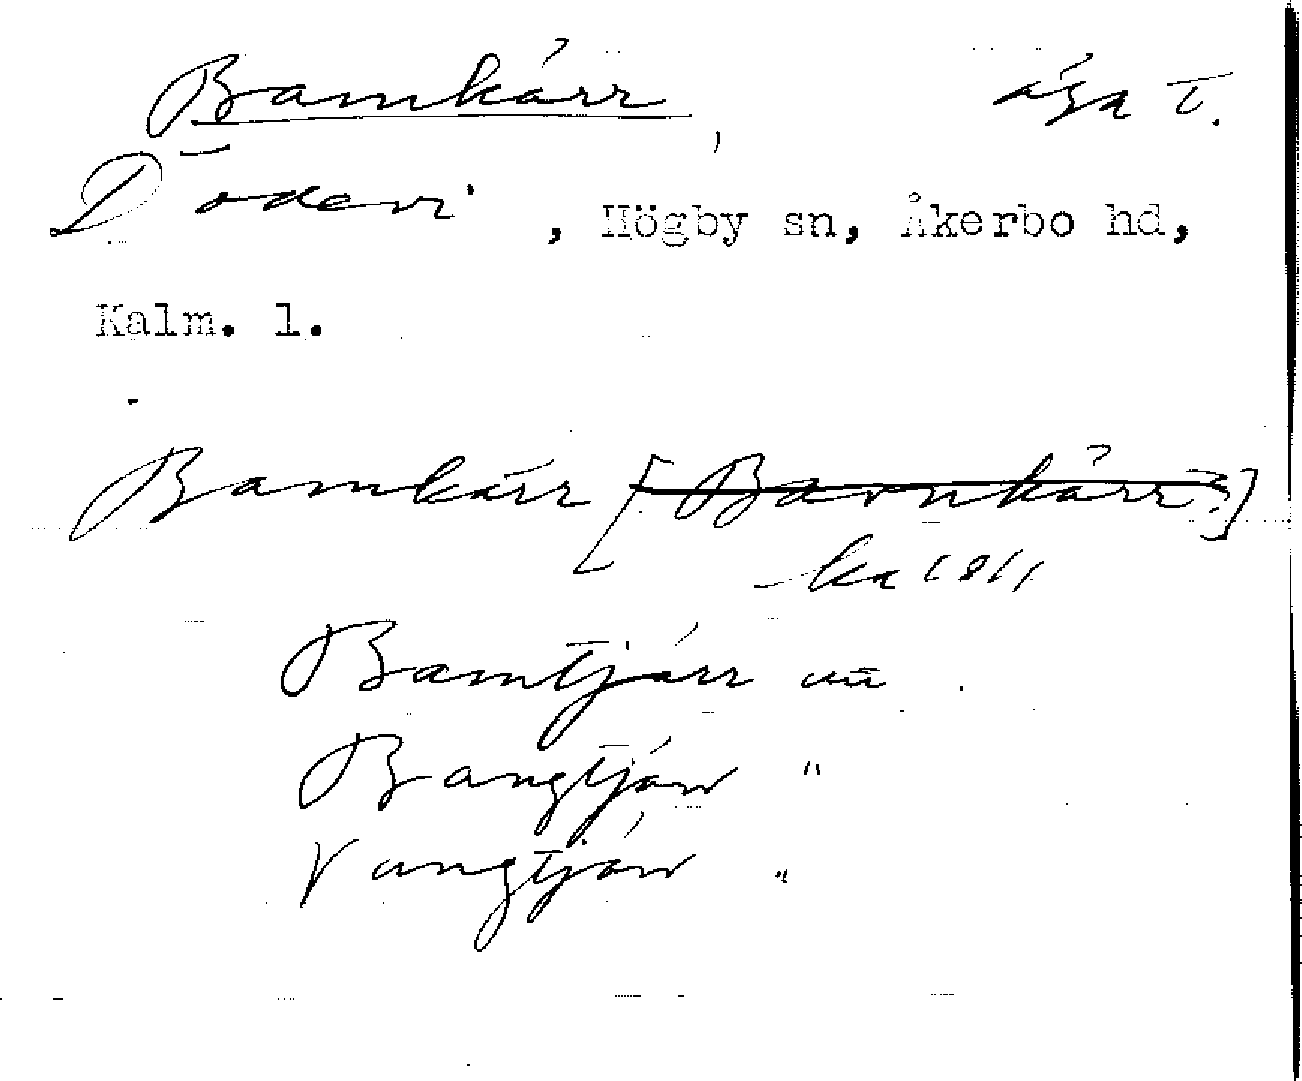 Bamkärr, äga t.
Dödevi, Högby sn, Åkerbo hd,
Kalm. l.
Bamkärr [Bavnkärr?]
ka 1811
Bamtjärr uu
Bangtjärr "
Vangtjärr "